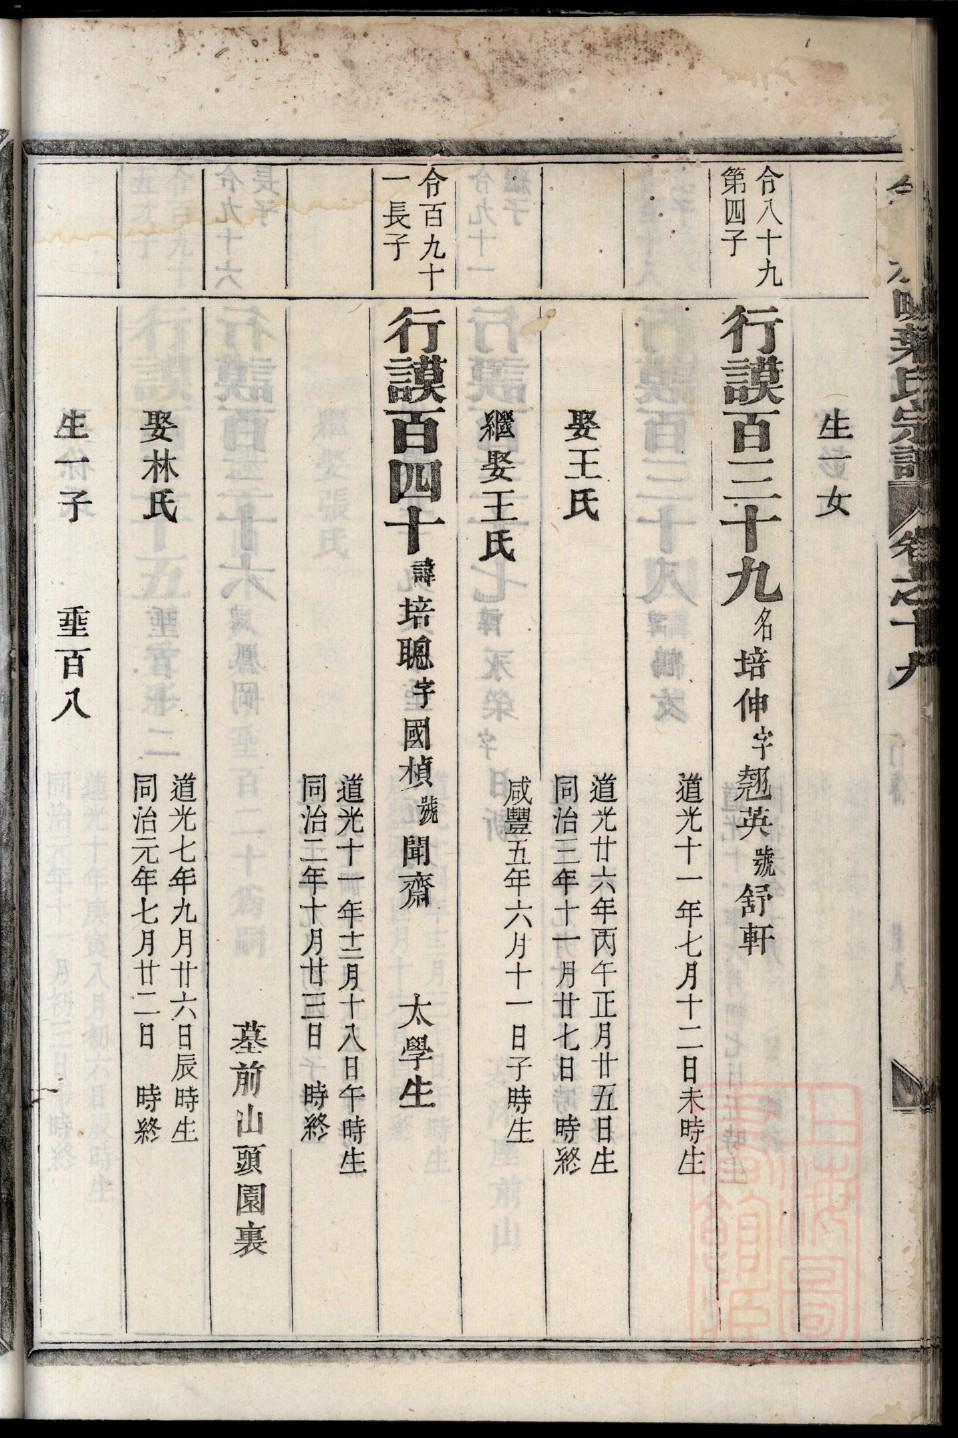 葉氏宗譜 卷之十九
生一女
令八十九
第四子
行謨百三十九 名培伸字翹英號舒軒
道光十一年七月十二日未時生
娶王氏
道光廿六年丙午正月廿五日生
同治三年十一月廿七日 時終
繼娶王氏
咸豐五年六月十一日子時生
令百九十
一長子
行謨百四十 諱培聰字國楨號聞齋 太學生
道光十一年十二月十八日午時生
同治二年十月廿三日 時終
墓前山頭園裏
娶林氏
道光七年九月廿六日辰時生
同治元年七月廿二日 時終
生一子 埀百八